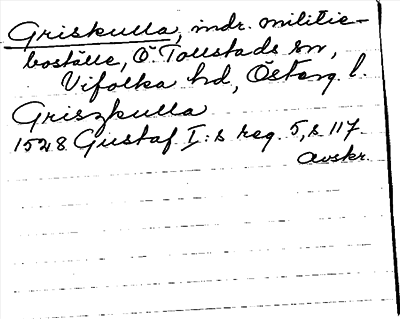 Griskulla, indr. militie-
boställe, Ö. Tollstads sn,
Vifolka hd, Österg. l.
Griszkulla
1528 Gustaf I:s reg. 5, s 117
Avskr.